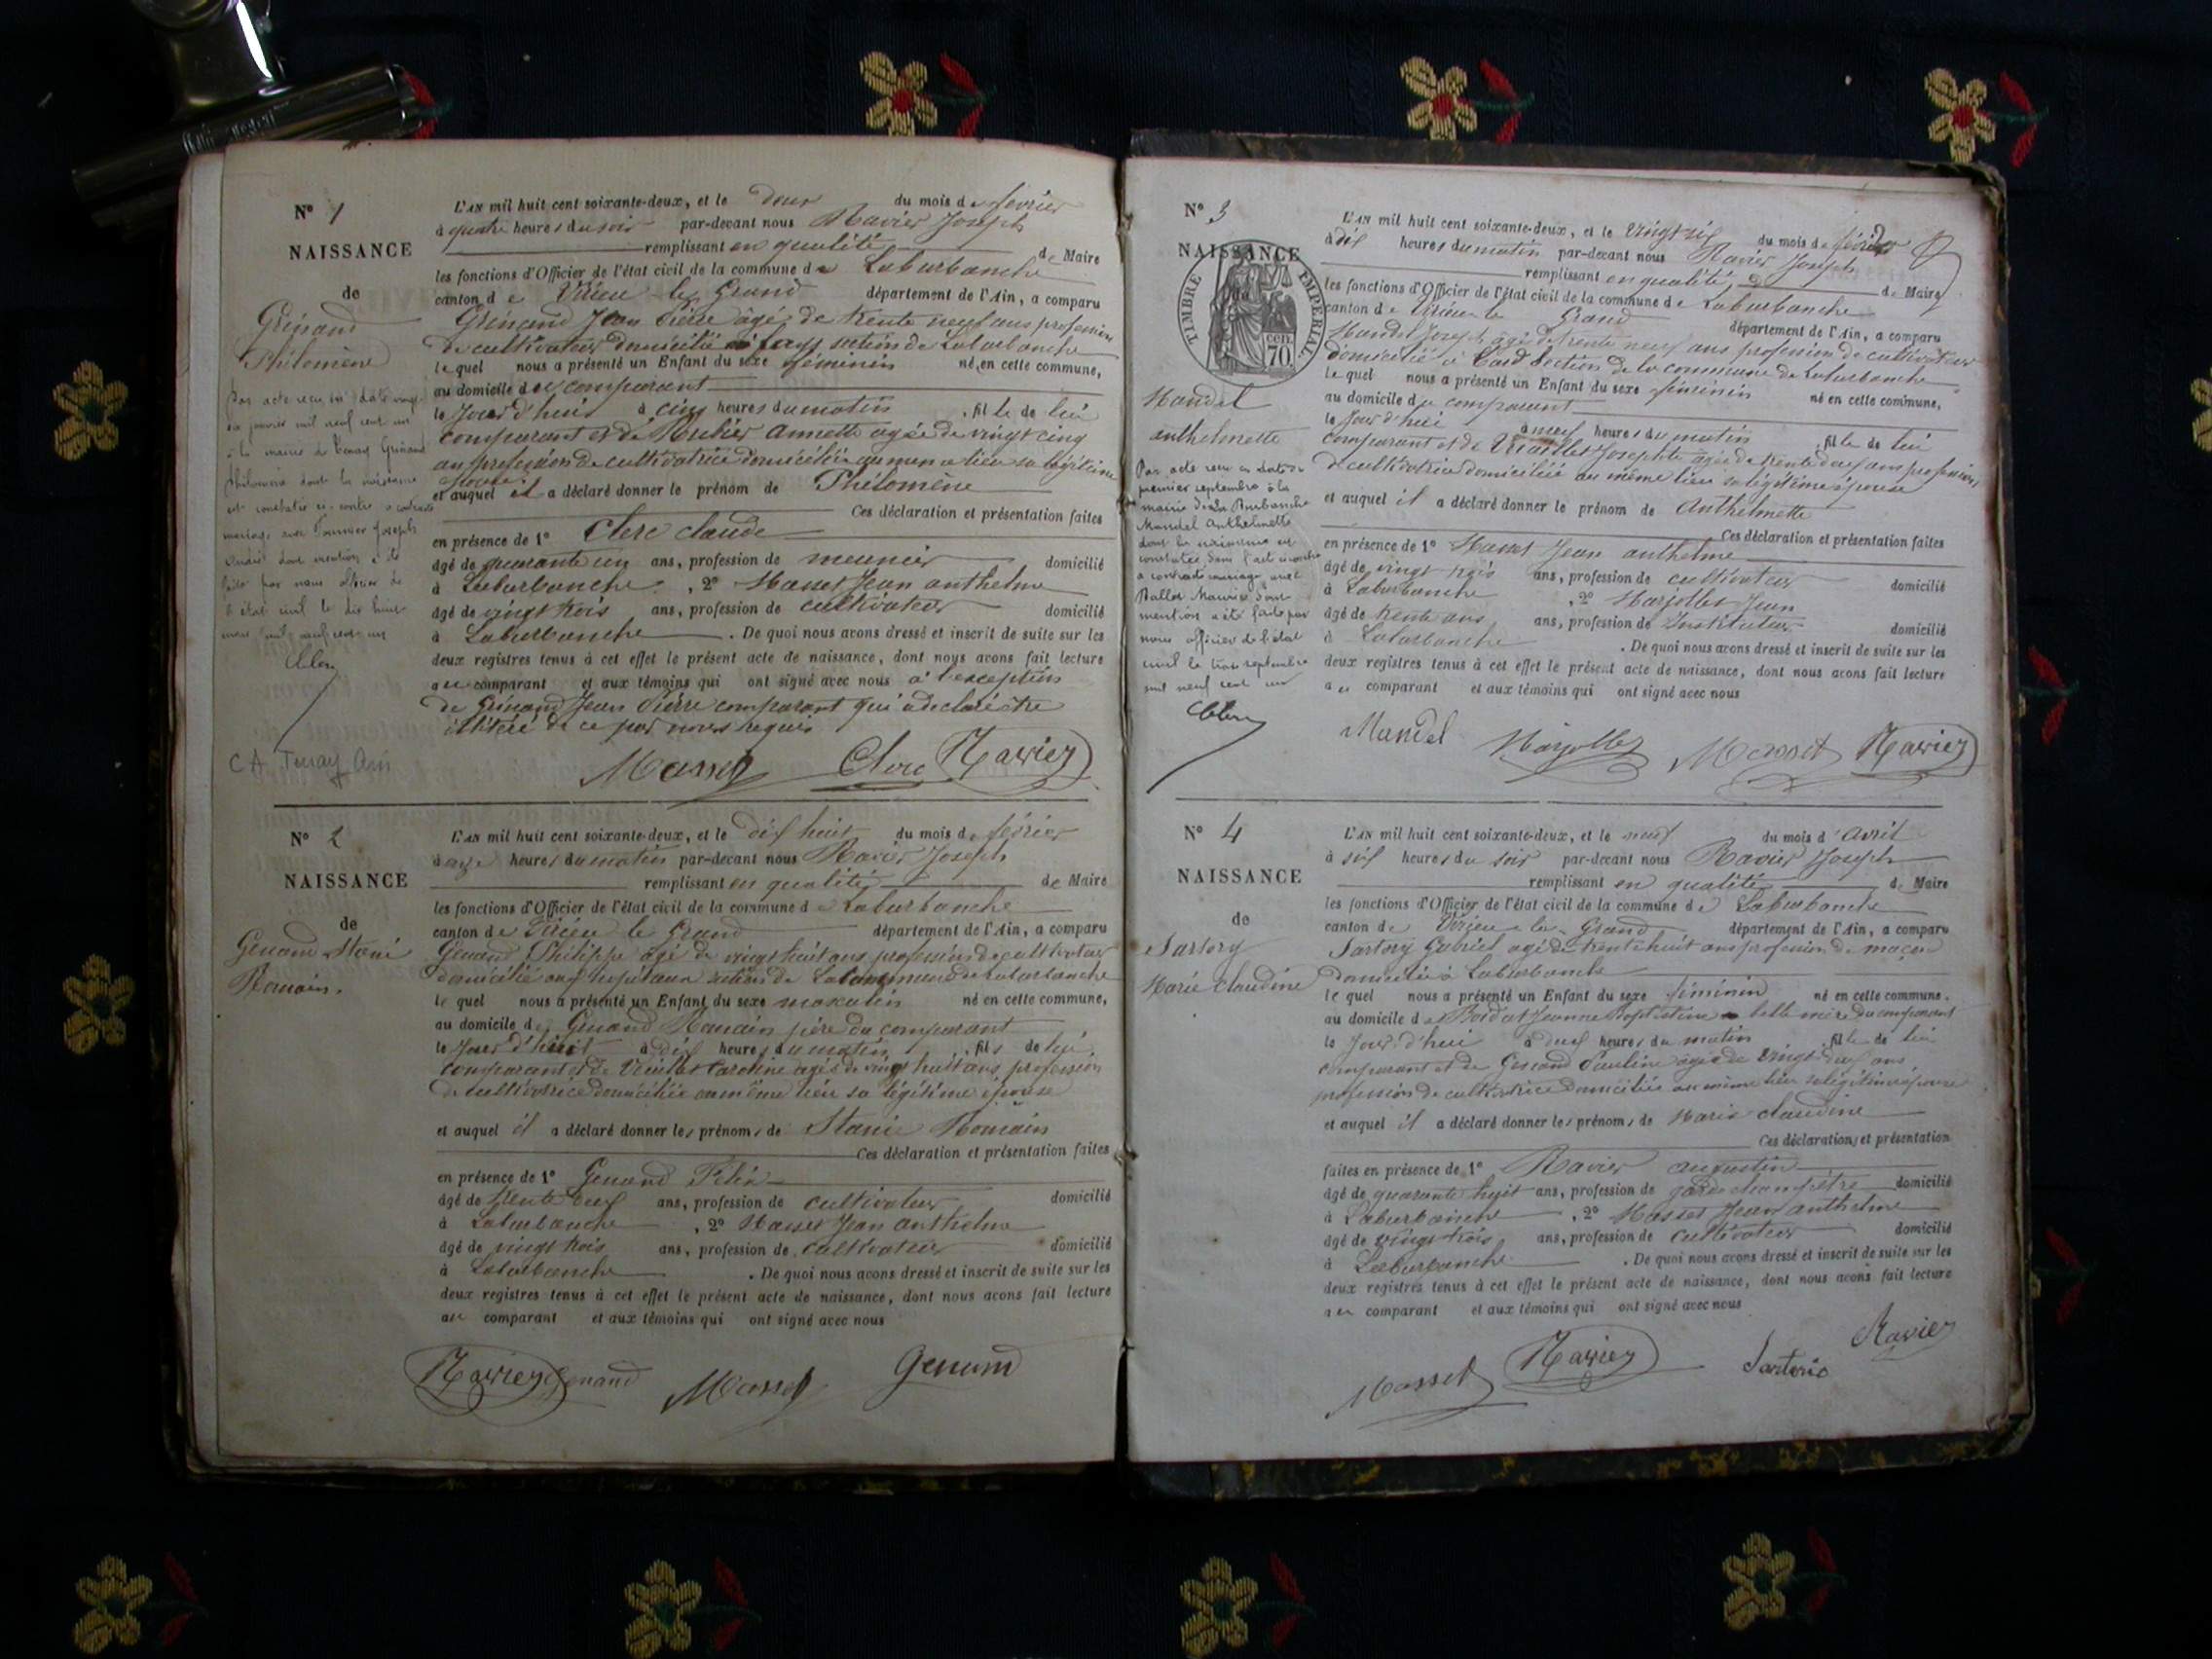 N° 1
NAISSANCE
de
Grinand
Philomène
Par acte reçu en date
janvier mil neuf cent un
à la mairie de Tenay Grinand
Philomène dont la naissance
est constatée ci-contre a contracté
mariage avec Fournier Joseph
dont mention a été
faite par nous officier de
l'état civil le dix huit
mil neuf cent un
CA Tenay Ain
L'AN mil huit cent soixante-deux, et le deux du mois de février
à quatre heures du soir par-devant nous Ravier Joseph
remplissant en qualité de Maire
les fonctions d'Officier de l'état civil de la commune de Laburbanche
canton de Virieu le Grand département de l'Ain, a comparu
Grinand Jean Pierre âgé de trente neuf ans profession
de cultivateur domicilié à section de Laburbanche
lequel nous a présenté un Enfant du sexe féminin né en cette commune,
au domicile du comparant
le Jour d'hui à cinq heures du matin, fille de lui
comparant et de Annette agée de vingt cinq
ans profession de cultivatrice domiciliée au même lieu sa légitime
épouse
et auquel il a déclaré donner le prénom de Philomène
Ces déclaration et présentation faites
en présence de 1° Clerc claude
âgé de quarante un ans, profession de meunier domicilié
à Laburbanche, 2° Masset Jean anthelme
âgé de vingt trois ans, profession de cultivateur domicilié
à Laburbanche. De quoi nous avons dressé et inscrit de suite sur les
deux registres tenus à cet effet le présent acte de naissance, dont nous avons fait lecture
au comparant et aux témoins qui ont signé avec nous à l'exception
de Grinand Jean Pierre comparant qui a déclaré être
illitéré de ce par nous requis
Masset Clerc Ravier
N° 2
NAISSANCE
de
Genand Stanie
Romain.
L'AN mil huit cent soixante-deux, et le dix huit du mois de février
à onze heures du matin par-devant nous Ravier Joseph
remplissant en qualité de Maire
les fonctions d'Officier de l'état civil de la commune de Laburbanche
canton de Virieu le Grand département de l'Ain, a comparu
Genand Philippe âgé de vingt huit ans profession de cultivateur
domicilié section de La commune de Laburbanche
lequel nous a présenté un Enfant du sexe masculin né en cette commune,
au domicile de Genand Romain père du comparant
le Jour d'huit à dix heures du matin, fils de lui
comparant et de Caroline agée de vingt huit ans profession
de cultivatrice domiciliée au même lieu sa légitime épouse
et auquel il a déclaré donner les prénoms de Stanie Romain
Ces déclaration et présentation faites
en présence de 1° Genand Félix
âgé de trente deux ans, profession de cultivateur domicilié
à Laburbanche, 2° Masset Jean anthelme
âgé de vingt trois ans, profession de cultivateur domicilié
à Laburbanche. De quoi nous avons dressé et inscrit de suite sur les
deux registres tenus à cet effet le présent acte de naissance, dont nous avons fait lecture
au comparant et aux témoins qui ont signé avec nous
Ravier Genand Masset Genand
N° 3
NAISSANCE
TIMBRE IMPERIAL
70 cen.
Mandel
anthelmette
Par acte reçu en date du
premier septembre à la
mairie de La Burbanche
Mandel Anthelmette
dont la naissance est
constatée dans l'acte ci-contre
a contracté mariage avec
Ballet Maurice dont
mention a été faite par
nous officier de l'état
civil le trois septembre
mil neuf cent un
L'AN mil huit cent soixante-deux, et le vingt six du mois de février
à dix heures du matin par-devant nous Ravier Joseph
remplissant en qualité de Maire
les fonctions d'Officier de l'état civil de la commune de Laburbanche
canton de Virieu le Grand département de l'Ain, a comparu
Mandel Joseph agé de trente neuf ans profession de cultivateur
domicilié à section de la commune de Laburbanche
lequel nous a présenté un Enfant du sexe féminin né en cette commune,
au domicile du comparant
le Jour d'hui à neuf heures du matin fille de lui
comparant et de Josephte agée de trente deux ans profession
de cultivatrice domiciliée au même lieu sa légitime épouse
et auquel il a déclaré donner le prénom de Anthelmette
Ces déclaration et présentation faites
en présence de 1° Masset Jean anthelme
âgé de vingt trois ans, profession de cultivateur domicilié
à Laburbanche, 2° Marjollet Jean
âgé de trente ans ans, profession de Instituteur domicilié
à Laburbanche. De quoi nous avons dressé et inscrit de suite sur les
deux registres tenus à cet effet le présent acte de naissance, dont nous avons fait lecture
au comparant et aux témoins qui ont signé avec nous
Mandel Marjollet Masset Ravier
N° 4
NAISSANCE
de
Sartory
Marie Claudine
L'AN mil huit cent soixante-deux, et le neuf du mois d'avril
à six heures du soir par-devant nous Ravier Joseph
remplissant en qualité de Maire
les fonctions d'Officier de l'état civil de la commune de Laburbanche
canton de Virieu le Grand département de l'Ain, a comparu
Sartory Gabriel agé de trente huit ans profession de maçon
domicilié à Laburbanche
lequel nous a présenté un Enfant du sexe féminin né en cette commune.
au domicile de Bordat Jeanne Baptistine belle mère du comparant
le Jour d'hui à deux heures du matin fille de lui
comparant et de Genand Pauline agée de vingt deux ans
profession de cultivatrice domiciliée au même lieu sa légitime épouse
et auquel il a déclaré donner les prénoms de Marie claudine
Ces déclarations et présentation
faites en présence de 1° Ravier augustin
âgé de quarante huit ans, profession de garde champêtre domicilié
à Laburbanche, 2° Masset Jean anthelme
âgé de vingt trois ans, profession de cultivateur domicilié
à Laburbanche. De quoi nous avons dressé et inscrit de suite sur les
deux registres tenus à cet effet le présent acte de naissance, dont nous avons fait lecture
au comparant et aux témoins qui ont signé avec nous
Masset Ravier Sartorio Ravier